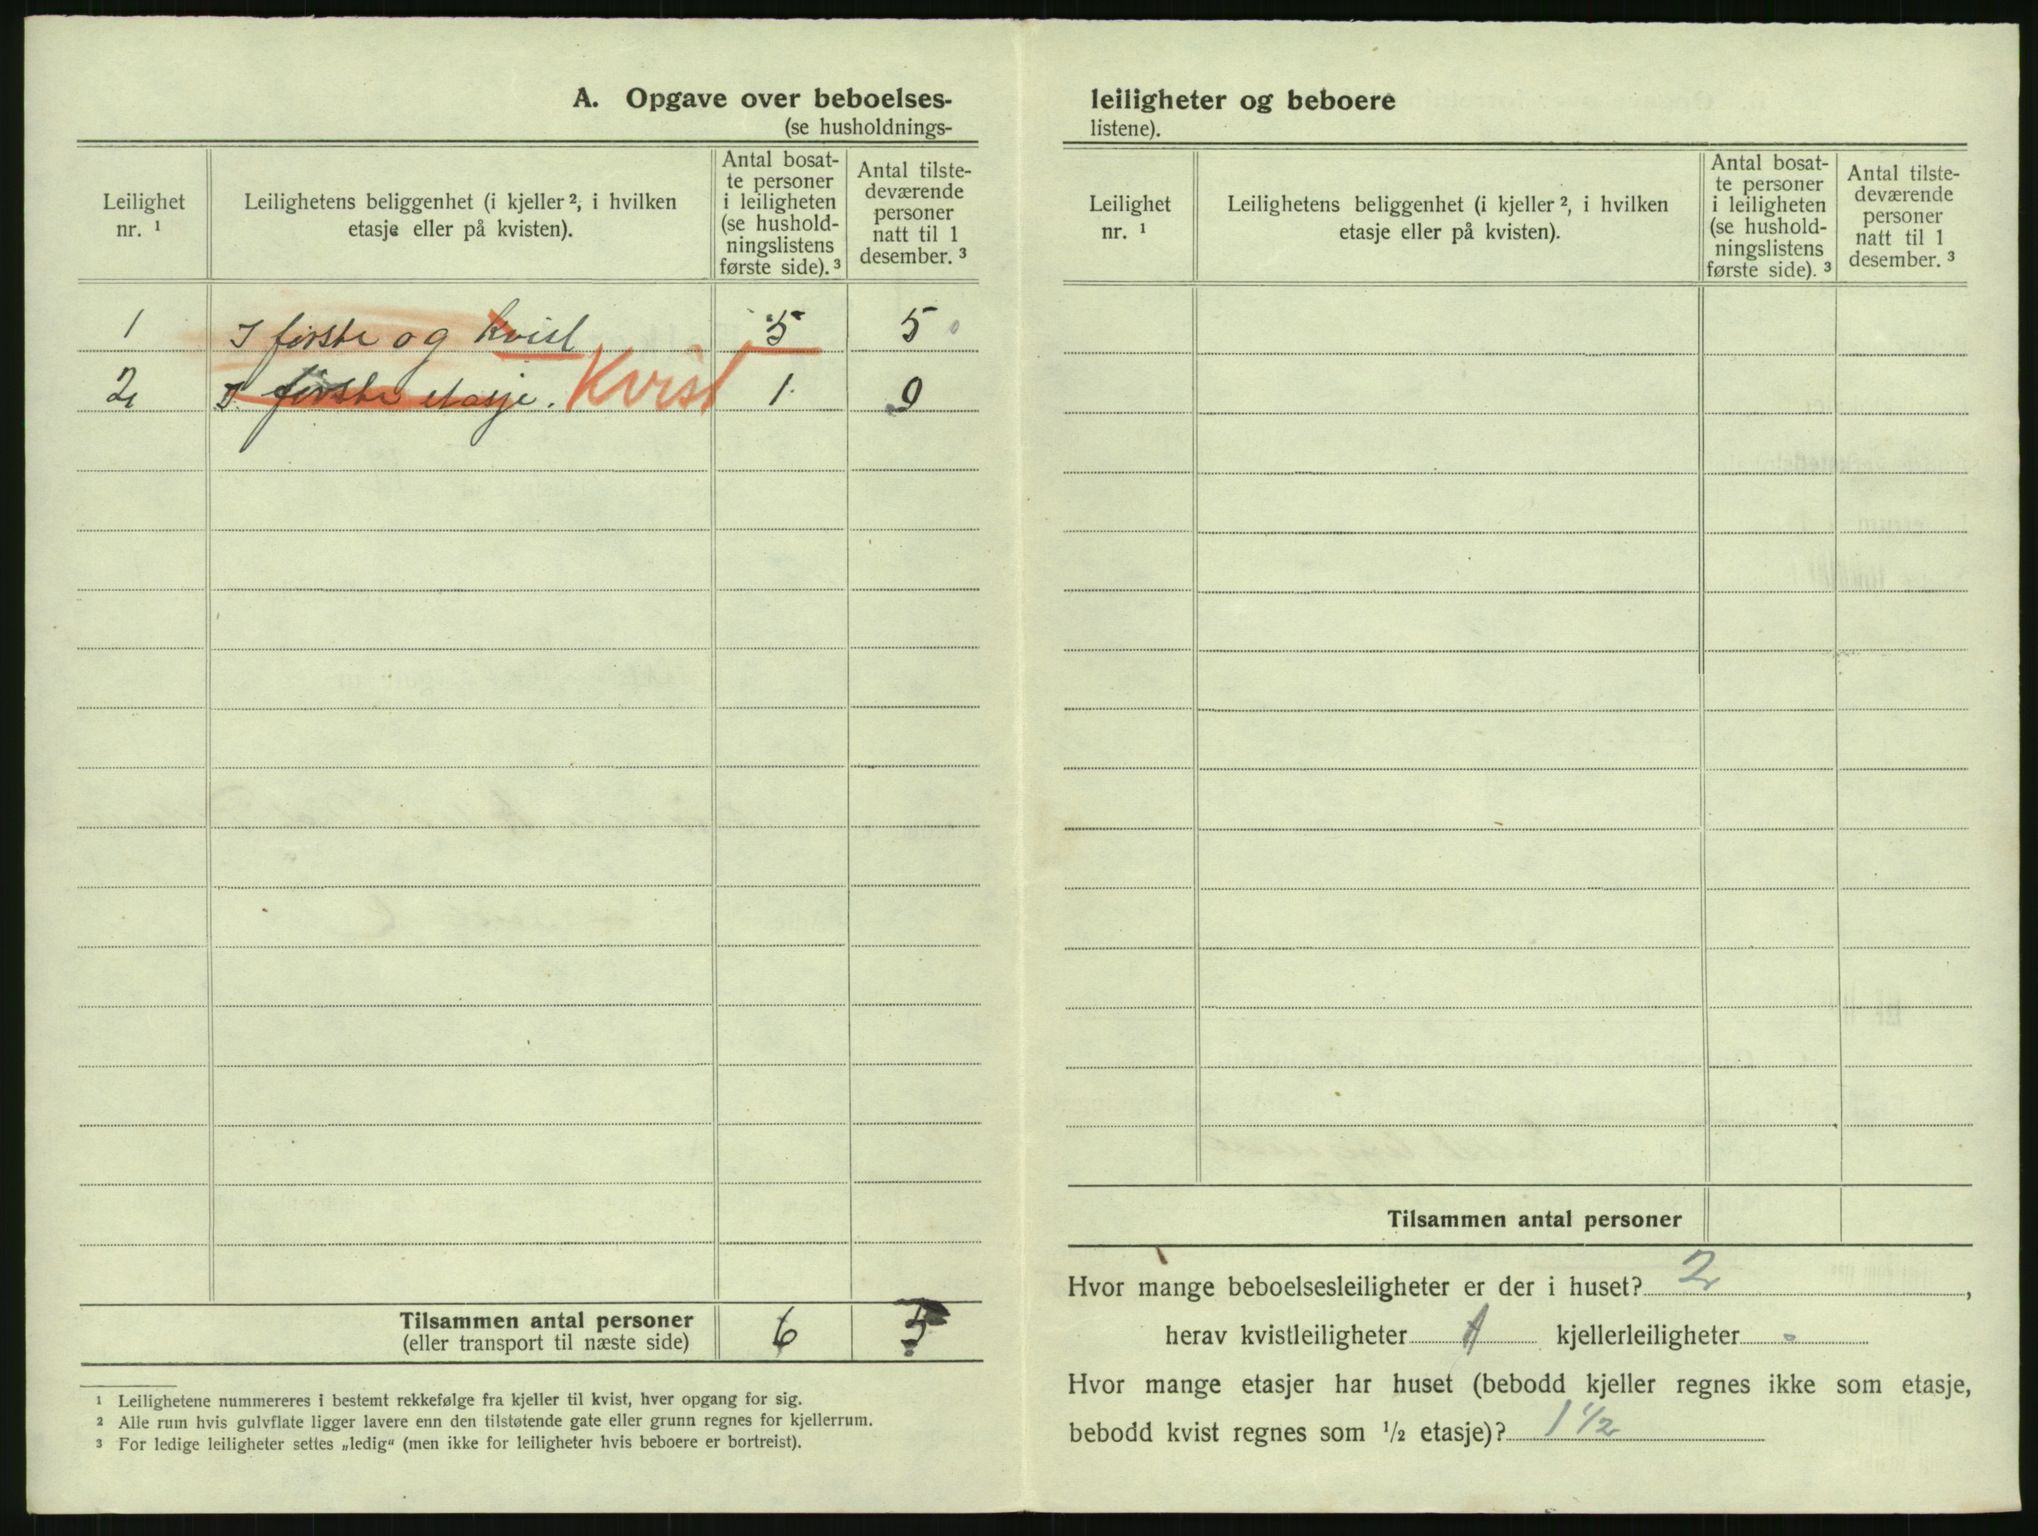 A. Opgave over beboelses-
(se husholdnings-
Leilighet
nr. ¹
Leilighetens beliggenhet (i kjeller ², i hvilken
etasje eller på kvisten).
Antal bosat-
te personer
i leiligheten
(se hushold-
ningslistens
første side). ³
Antal tilste-
deværende
personer
natt til 1
desember. ³
1 I første og kvist 5 5
2 I første etasje. Kvist 1 0
Tilsammen antal personer 6 5
(eller transport til næste side)
¹ Leilighetene nummereres i bestemt rekkefølge fra kjeller til kvist, hver opgang for sig.
² Alle rum hvis gulvflate ligger lavere enn den tilstøtende gate eller grunn regnes for kjellerrum.
³ For ledige leiligheter settes „ledig“ (men ikke for leiligheter hvis beboere er bortreist).
leiligheter og beboere
listene).
Leilighet
nr. ¹
Leilighetens beliggenhet (i kjeller ², i hvilken
etasje eller på kvisten).
Antal bosat-
te personer
i leiligheten
(se hushold-
ningslistens
første side). ³
Antal tilste-
deværende
personer
natt til 1
desember. ³
Tilsammen antal personer
Hvor mange beboelsesleiligheter er der i huset? 2,
herav kvistleiligheter kjellerleiligheter
Hvor mange etasjer har huset (bebodd kjeller regnes ikke som etasje,
bebodd kvist regnes som ½ etasje)? 1 ½